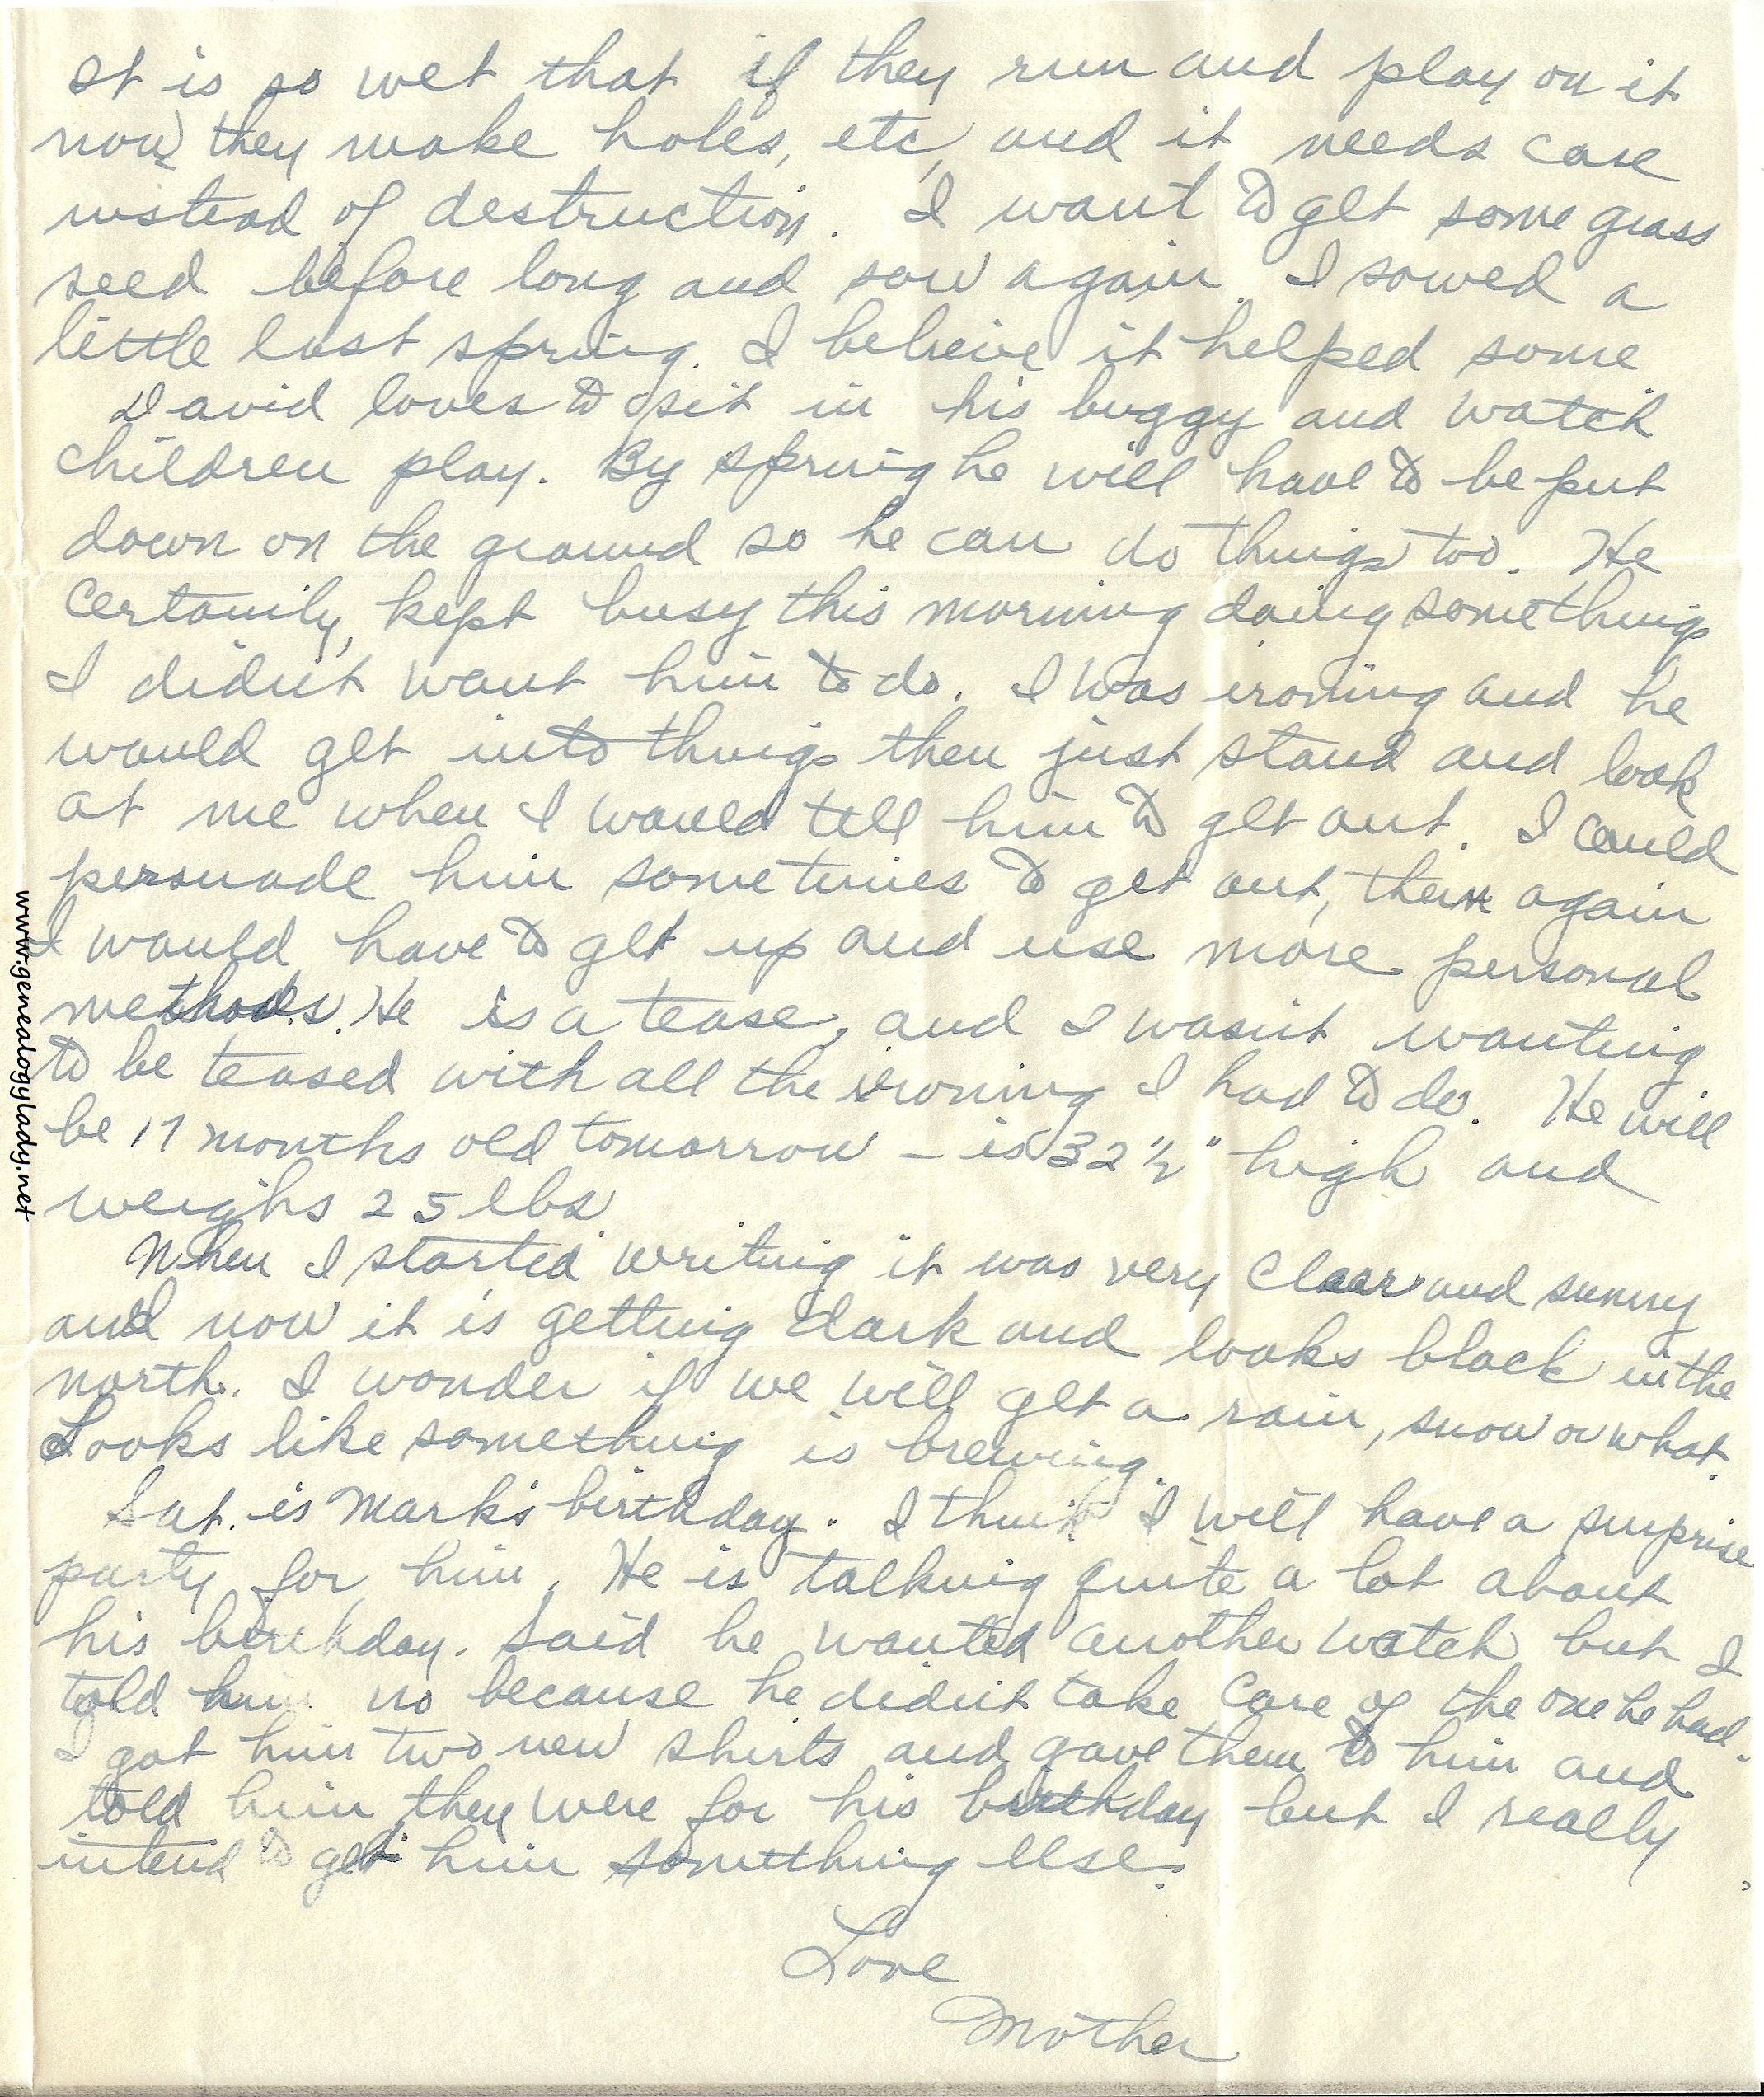 It is so wet that if they run and play on it
now they make holes, etc, and it needs care
instead of destruction. I want to get some grass
seed before long and sow again. I sowed a
little last spring. I believe it helped some
David loves to sit in his buggy and watch
children play. By spring he will have to be put
down on the ground so he can do things too. He
certainly, kept busy this morning doing somethings
I didn't want him to do. I was ironing and he
would get into things then just stand and look
at me when I would tell him to get out. I could
persuade him sometimes to get out, then again
I would have to get up and use more personal
methods. He is a tease, and I wasn't wanting
to be teased with all the ironing I had to do. He will
be 17 months old tomorrow – is 32 1/2" high and
weighs 25 lbs
When I started writing it was very clear and sunny
and now it is getting dark and looks black in the
north. I wonder if we will get a rain, snow or what.
Looks like something is brewing.
Sat. is Mark's birthday. I think I will have a surprise
party for him. He is talking quite a lot about
his birthday. Said he wanted another watch but I
told him no because he didn't take care of the one he had.
I got him two new shirts and gave them to him and
told him they were for his birthday but I really
intend to get him something else.
Love
Mother
www.genealogylady.net